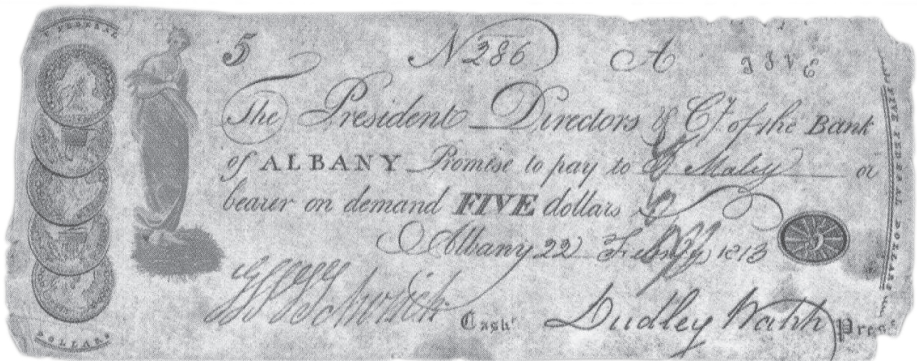 5 No 286 A FIVE
The President Directors & Co. of the Bank
of ALBANY Promise to pay to or
bearer on demand FIVE dollars
Albany 22 Feb'y 1813
Cash.r Dudley Walsh Pres
FEDERAL
DOLLARS
FIVE FEDERAL DOLLARS